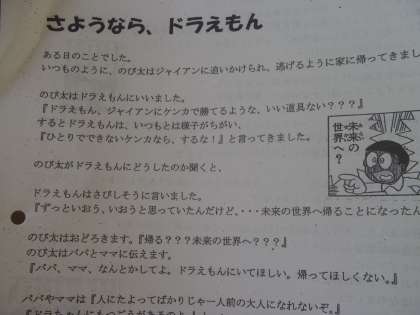 さようなら、ドラえもん
ある日のことでした。
いつものように、のび太はジャイアンに追いかけられ、逃げるように家に帰ってきまし
のび太はドラえもんにいいました。
『ドラえもん、ジャイアンにケンカで勝てるような、いい道具ない？？？』
するとドラえもんは、いつもとは様子がちがい、
『ひとりでできないケンカなら、するな！』と言ってきました。
未来の
世界へ？
のび太がドラえもんにどうしたのか聞くと、
ドラえもんはさびしそうに言いました。
『ずっといおう、いおうと思っていたんだけど、・・・未来の世界へ帰ることになったん
のび太はおどろきます。『帰る？？？未来の世界へ？？？』
のび太はパパとママに伝えます。
『パパ、ママ、なんとかしてよ。ドラえもんにいてほしい。帰ってほしくない。』
パパやママは『人にたよってばかりじゃ一人前の大人になれないぞ。』